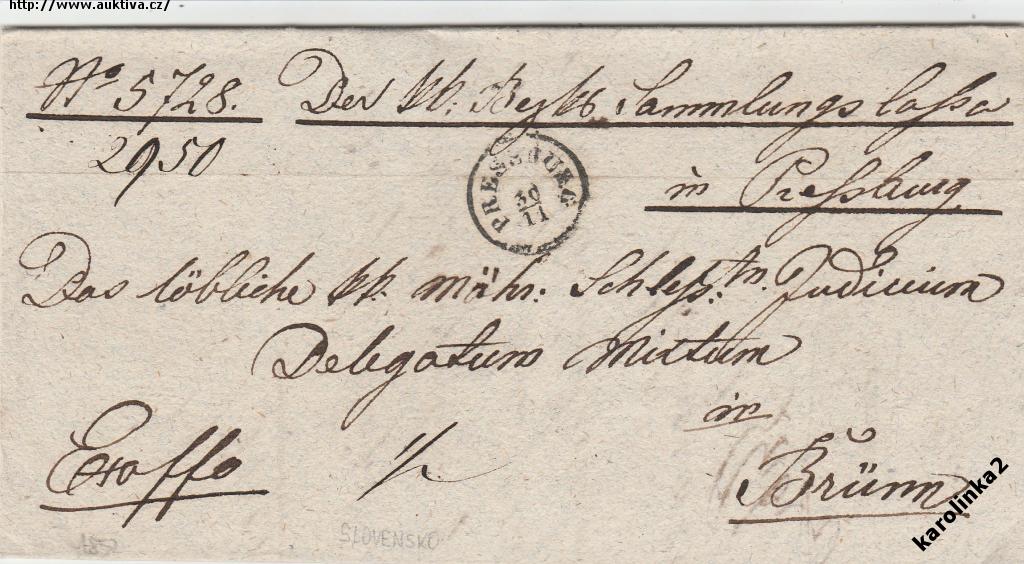 http://www.auktiva.cz/
No 5728. Der kk. Sammlungs Cassa
2950
in Pressburg
PRESSBURG
30
11
Das löbliche kk. mähr: Schless: tn. Judicium
Delegatum Mixtum
in
Exoffo
Brünn
karolinka2
1850
SLOVENSKO